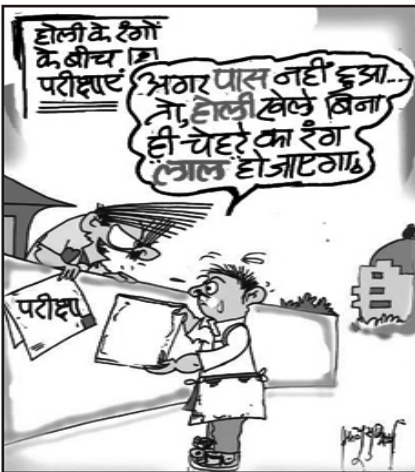 होली के रंगों
के बीच
परीक्षाएं
अगर पास नहीं हुआ...
तो, होली खेले बिना
ही चेहरे का रंग
लाल हो जाएगा
परीक्षा